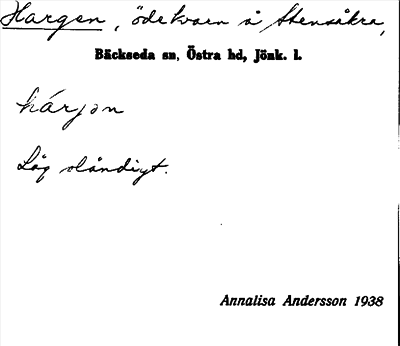 Hargen, ödekvarn å Stensåkra,
Bäckseda sn, Östra hd, Jönk. l.
hárjən
Låg oländigt.
Annalisa Andersson 1938